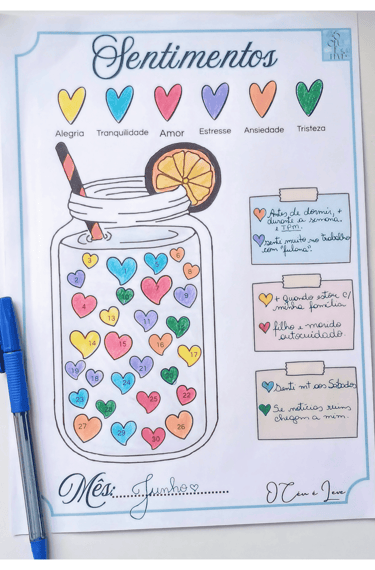 Sentimentos
Alegria Tranquilidade Amor Estresse Ansiedade Tristeza
3
5
6
1
8
2
4
7
9
10
13
11
12
14
15
16
17
19
18
24
21
20
23
28
25
22
27
29
30
26
Antes de dormir, +
durante a semana
e TPM.
senti muito no trabalho
com "fulana".
+ Quando estou c/
minha família
filho e marido
autocuidado.
Senti mt aos Sábados
Se notícias ruins
chegam a mim.
Mês: Junho
O Céu é Leve